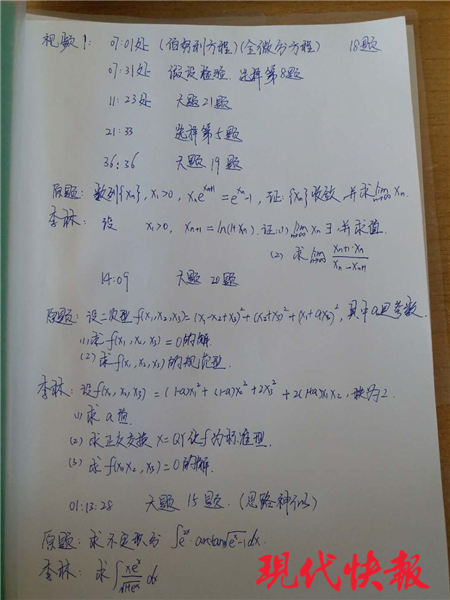 视频1: 07:01处 (伯努利方程)(全微分方程) 18题
07:31处 假设检验 选择第8题
11:23处 大题21题
21:33 选择第5题
36:36 大题19题
原题: 数列{xn}, x1>0, xne^xn+1=e^xn-1, 证:{xn}收敛, 并求lim n→∞ xn.
李林: 设 x1>0, xn+1=ln(1+xn). 证(1) lim n→∞ xn ∃, 并求值.
(2) 求lim n→∞
14:09 大题20题
原题: 设二次型f(x1,x2,x3)=(x1-x2+x3)²+(x2+x3)²+(x1+ax3)², 其中a是参数.
(1)求f(x1,x2,x3)=0的解.
(2)求f(x1,x2,x3)的规范型.
李林: 设f(x1,x2,x3)=(1-a)x1²+(1-a)x2²+2x3²+2(1+a)x1x2, 秩为2.
(1) 求a值.
(2) 求正交变换x=QY化f为标准型.
(3) 求f(x1,x2,x3)=0的解.
01:13:28 大题15题. (思路神似)
原题: 求不定积分 ∫e^2x·arctan√(e^x-1)dx.
李林: 求∫xe^x/√(1+e^x) dx
现代快报